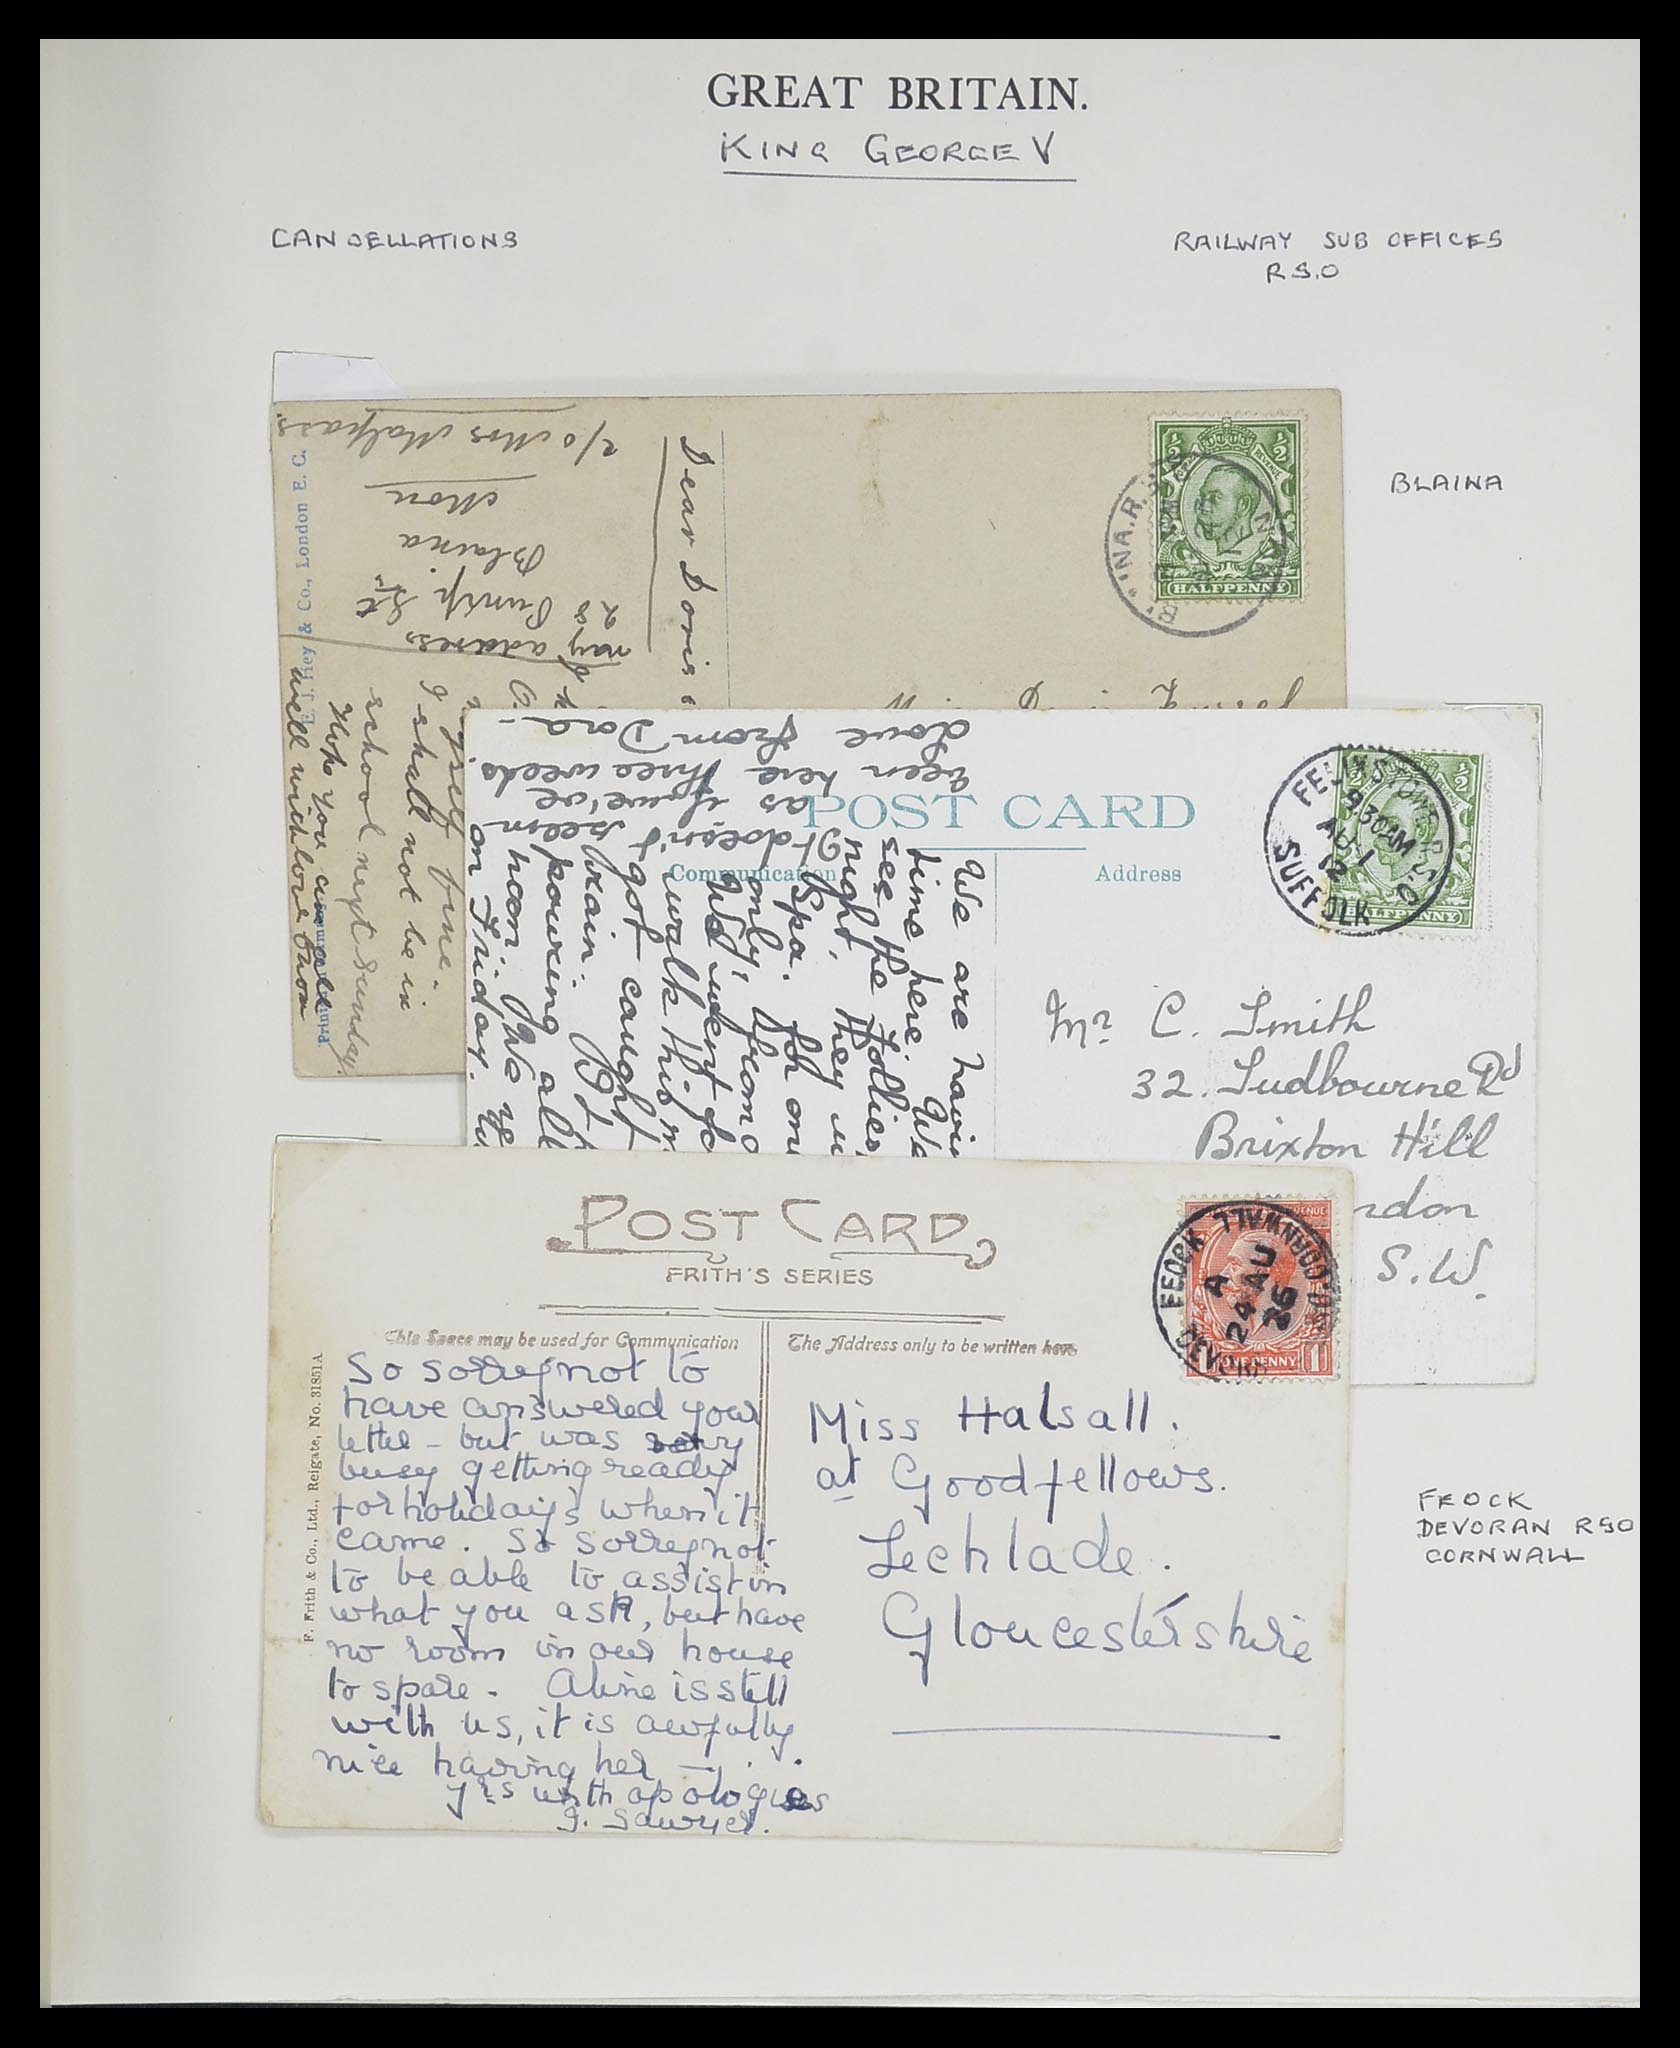 GREAT BRITAIN.
KING GEORGE V
CANCELLATIONS
RAILWAY SUB OFFICES
R.S.O
BLAINA
c/o Mrs Malpass.
Mon
Blaina
28 St
my address
E. J. Hey & Co., London E. C.
Dear Doris
myself fine.
I shall not be in
school next Sunday.
Hope you are all
well with love from
½ ½
POSTAL REVENUE
HALFPENNY
INA.R.S.O
MON
love from Dora-
been here three weeks.
as if we've
It doesn't seem
POST CARD
Communication
Address
We are havin
time here. We
see the Follies
right, they w
Spa. for on
only, from
We went fo
walk this m
got caught
rain.
pouring all
noon. We
on Friday.
½
HALFPENNY
FELIXSTOWE R.S.O.
9.30AM
AU 1
12
SUFFOLK
Mr. C. Smith
32. Sudbourne Rd
Brixton Hill
ndon
S.W.
POST CARD
FRITH'S SERIES
This Space may be used for Communication
The Address only to be written here
F. Frith & Co., Ltd., Reigate, No. 31851A
So sorry not to
have answered your
letter - but was very
busy getting ready
for holidays when it
came. So sorry not
to be able to assist in
what you ask, but have
no room in our house
to spare - Aline is still
with us, it is awfully
nice having her -
yrs with apologies
J. Sawyer.
REVENUE
1 ONE PENNY 1
FEOCK CORNWALL
A
24 AU
26
DEVORAN
Miss Halsall.
at Goodfellows.
Lechlade.
Gloucestershire
FEOCK
DEVORAN RSO
CORNWALL